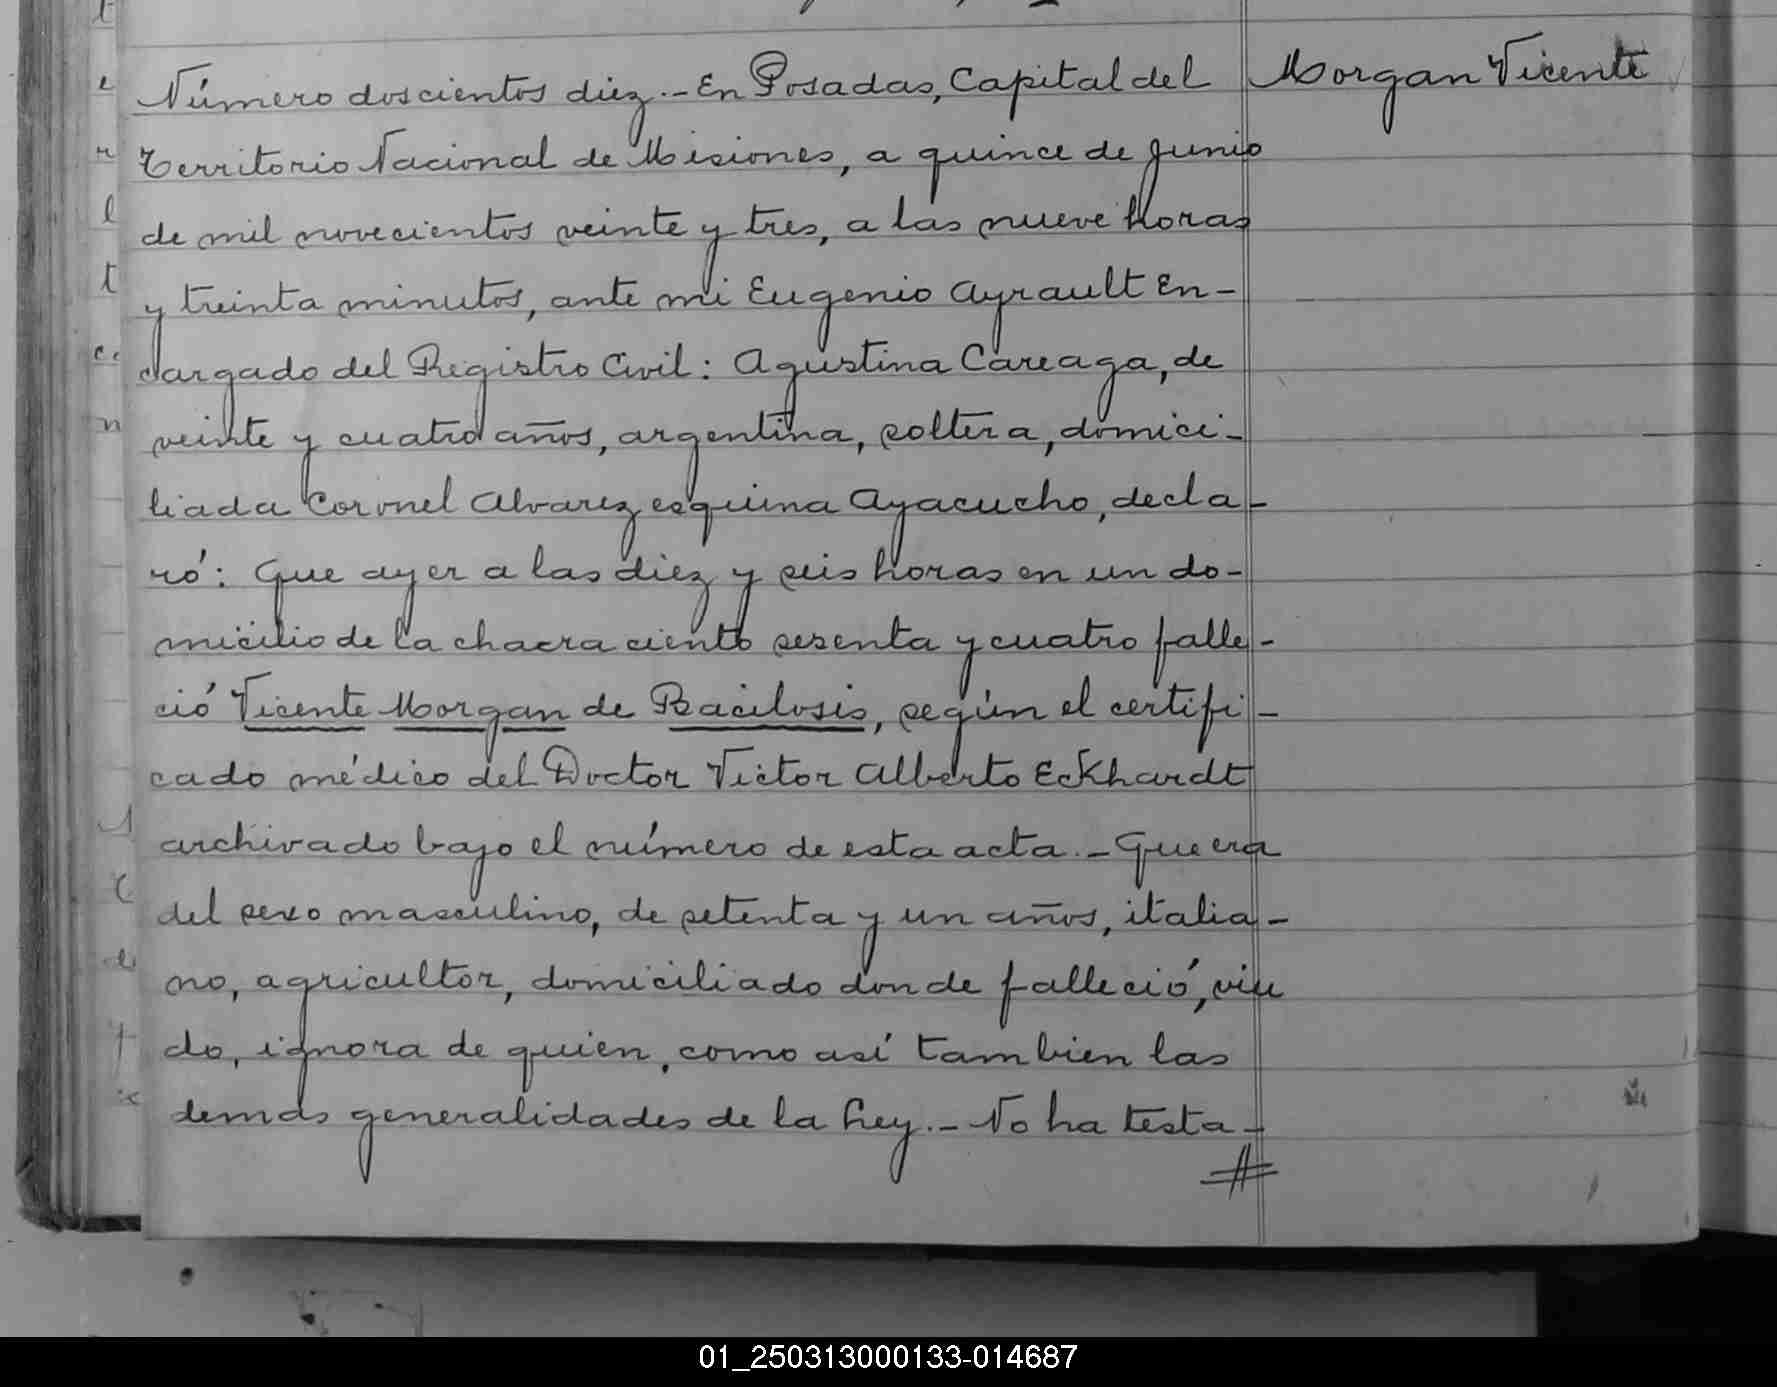 Número doscientos diez.- En Posadas, Capital del
Morgan Vicente
Territorio Nacional de Misiones, a quince de Junio
de mil novecientos veinte y tres, a las nueve horas
y treinta minutos, ante mi Eugenio Ayrault En-
cargado del Registro Civil: Agustina Careaga, de
veinte y cuatro años, argentina, soltera, domici-
liada Coronel Alvarez esquina Ayacucho, decla-
ró: Que ayer a las diez y seis horas en un do-
micilio de la chacra ciento sesenta y cuatro falle-
ció Vicente Morgan de Bacilosis, según el certifi-
cado médico del Doctor Victor Alberto Eckhardt
archivado bajo el número de esta acta.- Que era
del sexo masculino, de setenta y un años, italia-
no, agricultor, domiciliado donde falleció, viu
do, ignora de quien, como así tambien las
demás generalidades de la Ley.- No ha testa-
01_250313000133-014687